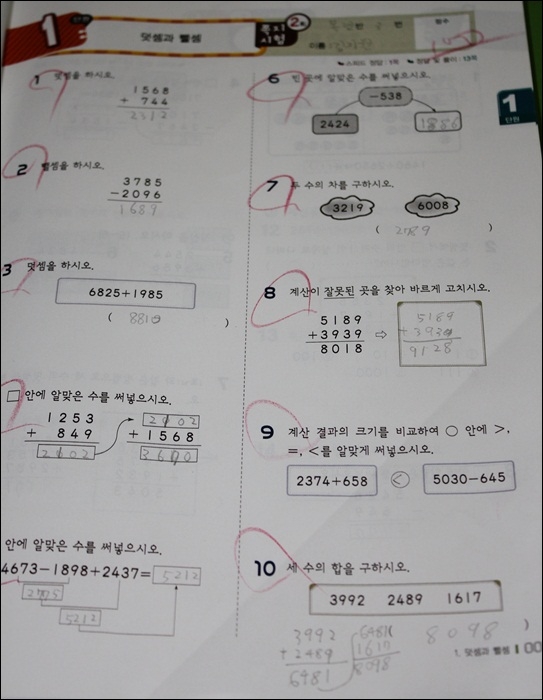 1
단원
덧셈과 뺄셈
쪽지
시험
2회
반
번
이름
점수
스피드 정답
정답 및 풀이
1 덧셈을 하시오.
1568
+ 744
2312
2 뺄셈을 하시오.
3785
−2096
1689
3 덧셈을 하시오.
6825+1985
( 8810 )
□ 안에 알맞은 수를 써넣으시오.
1253
+ 849
2102
2102
+1568
3670
안에 알맞은 수를 써넣으시오.
4673−1898+2437= 5212
5212
6 빈 곳에 알맞은 수를 써넣으시오.
−538
2424 1886
1
단원
7 두 수의 차를 구하시오.
3219 6008
( 2789 )
8 계산이 잘못된 곳을 찾아 바르게 고치시오.
5189
+3939
8018
⇨
5189
+3939
9128
9 계산 결과의 크기를 비교하여 ○ 안에 >,
=, <를 알맞게 써넣으시오.
2374+658 < 5030−645
10 세 수의 합을 구하시오.
3992 2489 1617
3992
+2489
6481
6481
1617
8098
8098 )
1. 덧셈과 뺄셈